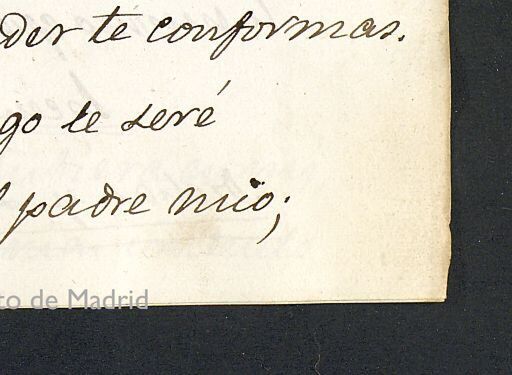 der te conformas.
go te seré
l padre mio;
to de Madrid